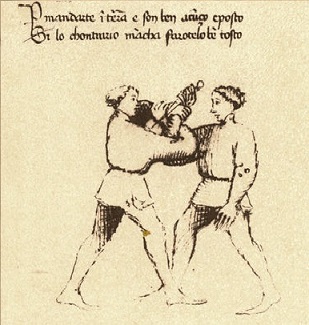 P mandarte ī tēra e son ben acūço eposto
Si lo chontrario mācha farotelo bē tosto